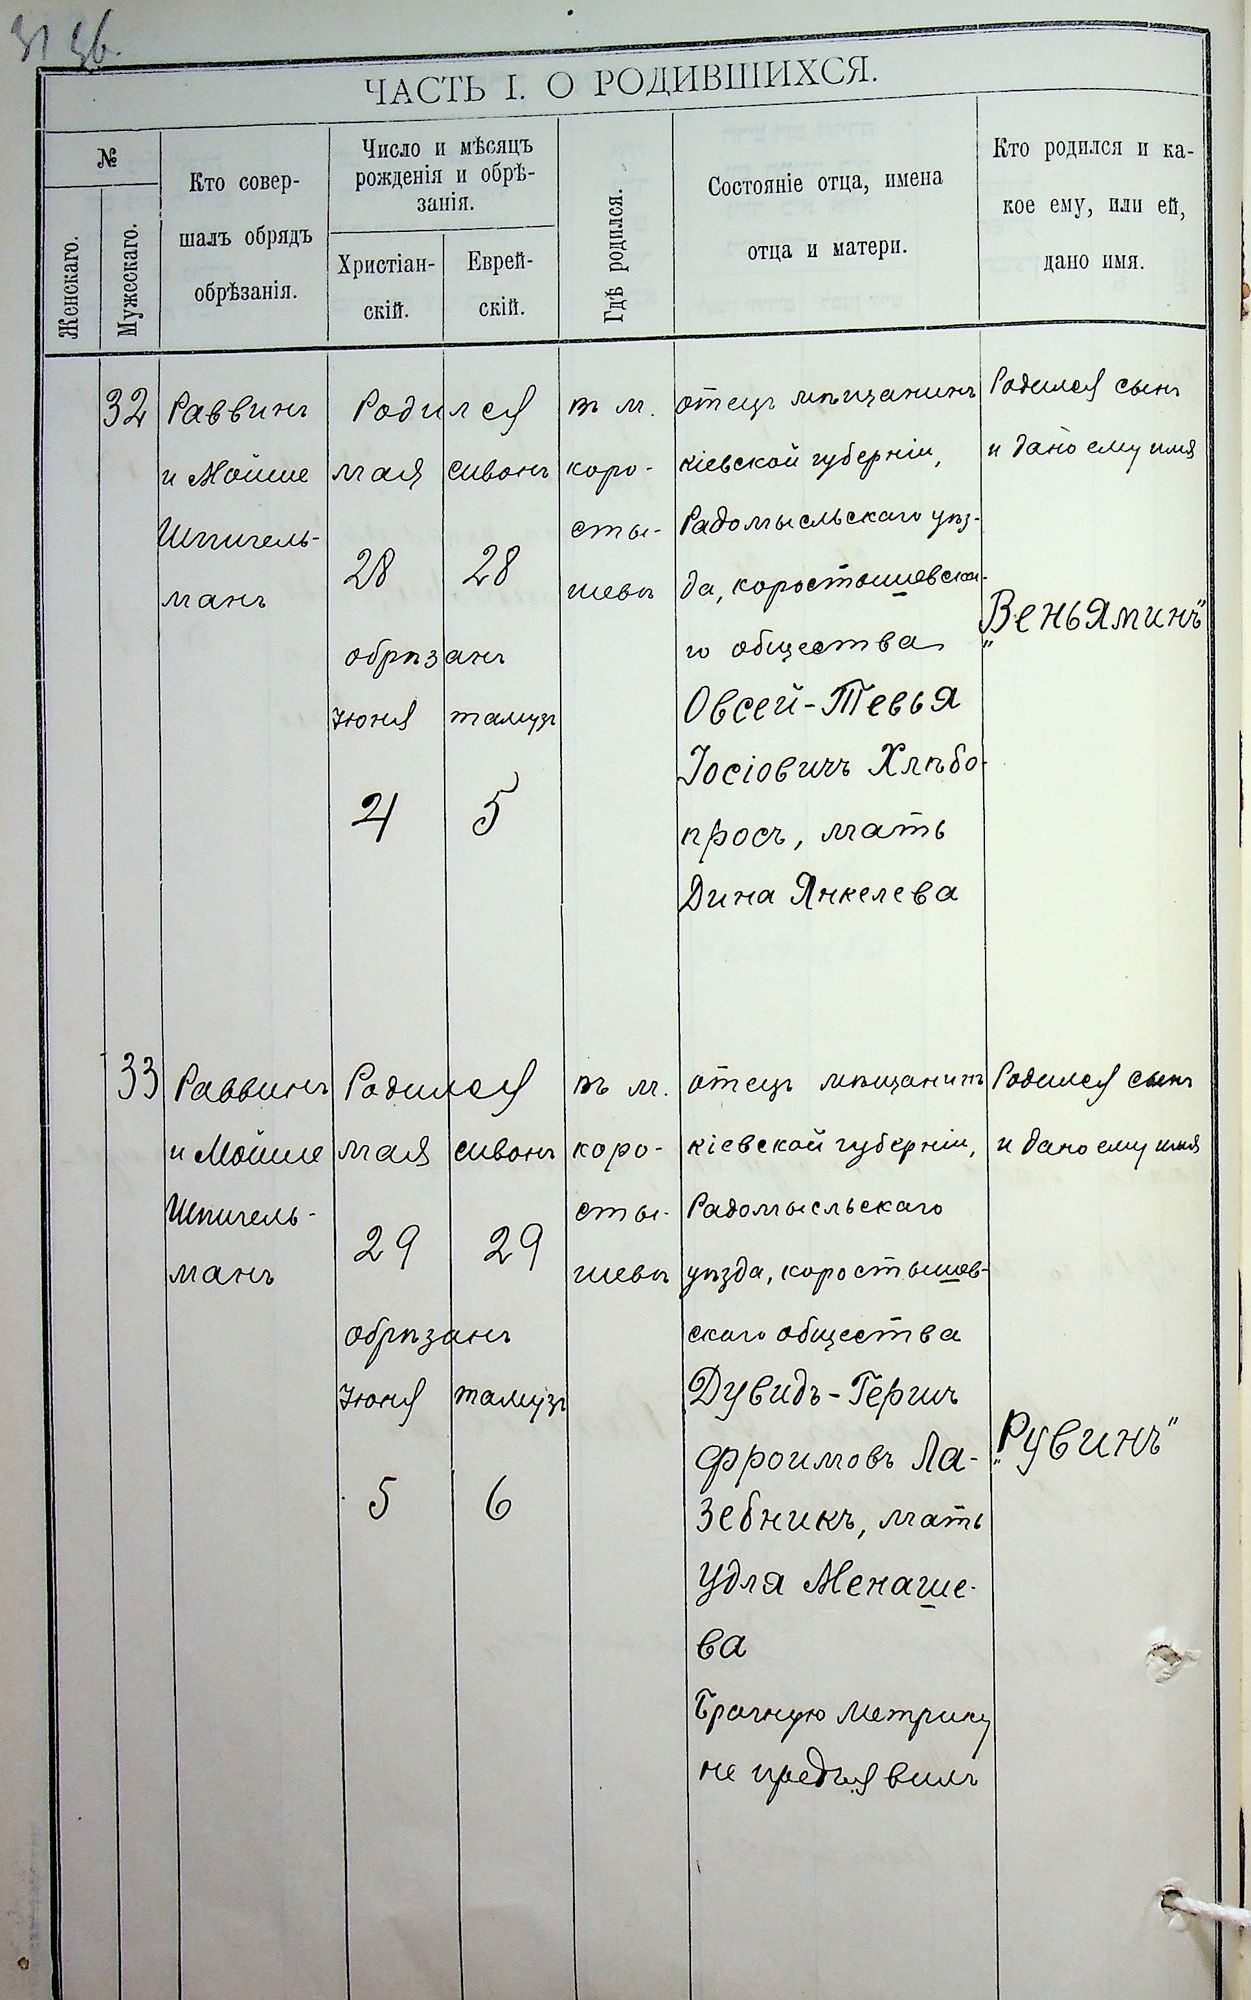 ЧАСТЬ I. О РОДИВШИХСЯ.
№
Женскаго.
Мужескаго.
Кто совер-
шалъ обрядъ
обрѣзанія.
Число и мѣсяцъ
рожденія и обрѣ-
занія.
Христіан-
скій.
Еврей-
скій.
Гдѣ родился.
Состояніе отца, имена
отца и матери.
Кто родился и ка-
кое ему, или ей,
дано имя.
32
Раввинъ
и Мойше
Шпигель-
манъ
Родился
мая сивонъ
28 28
обрѣзанъ
Іюня тамузъ
4 5
въ м.
коро-
сты-
шевѣ
отецъ мѣщанинъ
кіевской губерніи,
Радомысльскаго уѣз-
да, коростышевска-
го общества
Овсей-Тевья
Іосіовичъ Хлѣбо-
просъ, мать
Дина Янкелева
Родился сынъ
и дано ему имя
„Веньяминъ“
33
Раввинъ
и Мойше
Шпигель-
манъ
Родился
мая сивонъ
29 29
обрѣзанъ
Іюня тамузъ
5 6
въ м.
коро-
сты-
шевѣ
отецъ мѣщанинъ
кіевской губерніи,
Радомысльскаго
уѣзда, коростышев-
скаго общества
Дувидъ-Гершъ
Фроимовъ Ла-
зебникъ, мать
Удля Менаше-
ва
Брачную метрику
не предъявилъ
Родился сынъ
и дано ему имя
„Рувинъ“